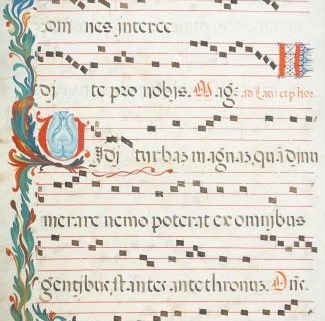 om nes interce
di te pro nobis. Mag
Vidi turbaz magnaz, quā dinu
merare nemo poterat ex omnibus
gentibus stantes ante thronuz.